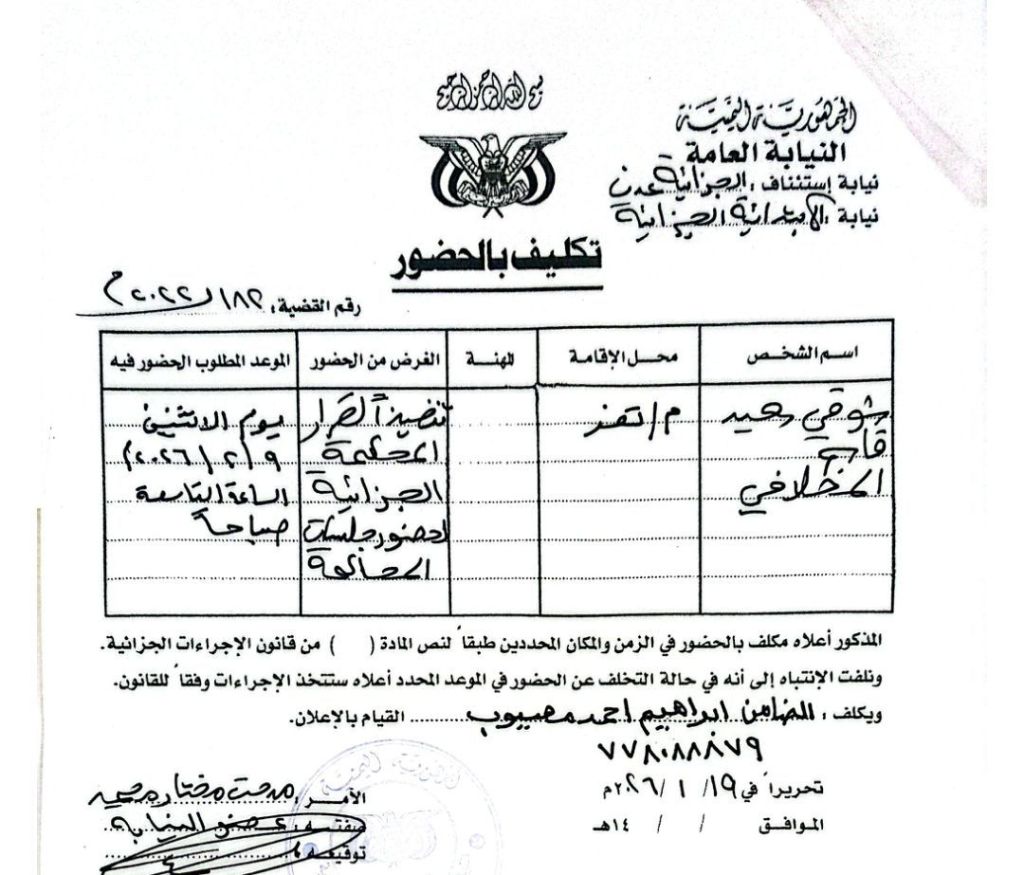 بسم الله الرحمن الرحيم
الجمهورية اليمنية
النيابة العامة
نيابة إستئناف : الجزائية عدن
نيابة : الابتدائية الجزائية
تكليف بالحضور
رقم القضية : ١٨٢ / ٢٠٢٢م
اسم الشخص
محل الإقامة
المهنة
الغرض من الحضور
الموعد المطلوب الحضور فيه
شوقي سعيد
قاسم
المخلافي
م/تعز
تنفيذاً لقرار
المحكمة
الجزائية
لحضور جلسات
المحاكمة
يوم الاثنين
٢٠٢٦/٢/٩
الساعة التاسعة
صباحاً
المذكور أعلاه مكلف بالحضور في الزمن والمكان المحددين طبقاً لنص المادة ( ) من قانون الإجراءات الجزائية.
ونلفت الإنتباه إلى أنه في حالة التخلف عن الحضور في الموعد المحدد أعلاه ستتخذ الإجراءات وفقاً للقانون.
ويكلف : الضامن ابراهيم احمد القيام بالإعلان.
٧٧٨٠٨٨٨٧٩
تحريراً في ١٩ / ١ / ٢٠٢٦م
الموافق / / ١٤هـ
الآمر : مدحت مختار
صفته : عضو النيابة
توقيعه :